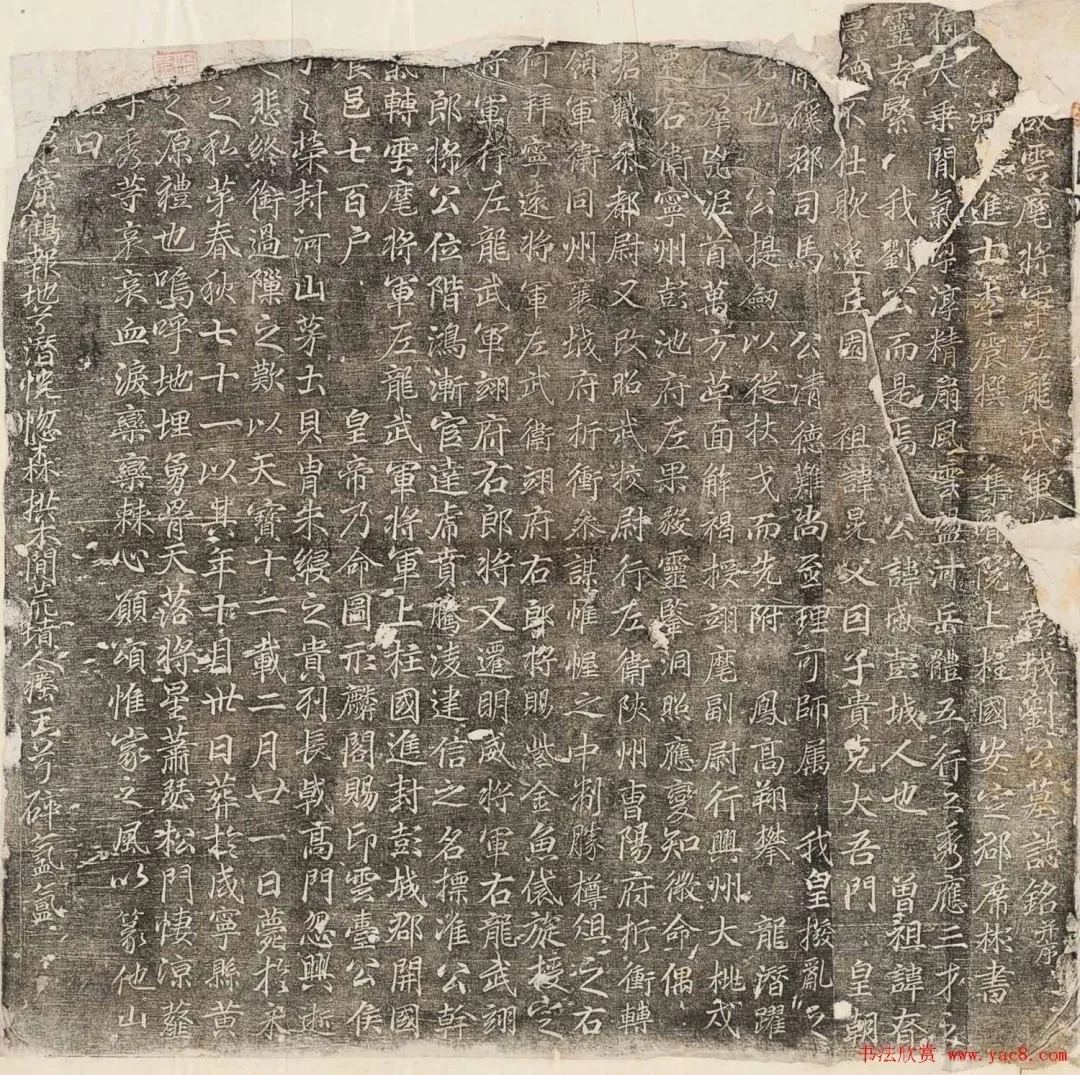 感雲麾將軍左龍武軍彭城劉公墓誌銘并序
河進士李震撰集賢院上柱國安定郡席彬書
猗大乘閒氣孕淳精扇風雲盪河岳體五行之秀應三才之
靈者繄我劉公而是焉公諱感彭城人也曾祖諱存
隱不仕耽逸丘園祖諱晃父曰子貴克大吾門皇朝
礫郡司馬公清德難尚丕理可師属我皇撥亂之
也公提劍以從扙戈而先附鳳高翔攀龍潛躍
群兇泥首萬方草面解褐授翊麾副尉行興州大桃戍
遷右衛寧州彭池府左果毅靈鑒洞照應變知微命偶
招職叅都尉又改昭武挍尉行左衛陝州曹陽府折衝轉
領軍衛同州襄城府折衝叅謀惟幄之中制勝樽俎之右
何拜寧遠將軍左武衛翊府右郎將賜紫金魚袋旋授定
將軍行左龍武軍翊府右郎將又遷明威將軍右龍武翊
郎將公位階鴻漸官達虎賁騰淩建信之名標淮公幹
氣轉雲麾將軍左龍武軍將軍上柱國進封彭城郡開國
食邑七百户皇帝乃命圖形麟閣賜印雲臺公侯
之榮封河山茅土貝胄朱綬之貴列長戟高門忽興逝
之悲終銜過隟之歎以天寶十二載二月廿一日薨於永
之私苐春秋七十一以其年十月卅日葬於咸寧縣黄
之原禮也嗚呼地埋勇骨天落將星蕭瑟松門悽凉薤
子秀等哀哀血淚欒欒棘心願頌惟家之風以篆他山
曰
鶴報地兮潛恍惚森拱木閒荒墳人瘞玉兮碎氤氳
书法欣赏 www.yac8.com